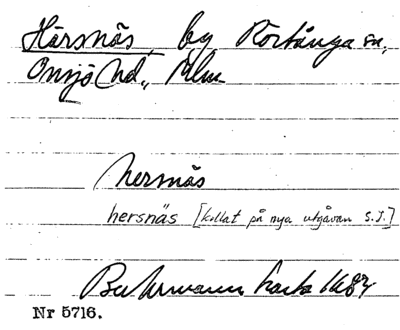 Härsnäs, by Röstånga sn,
Onsjö hd., Mlm.
hersnäs
hersnäs [kollat på nya utgåvan S.J.]
Buhrmanns karta 1684
Nr 5716.